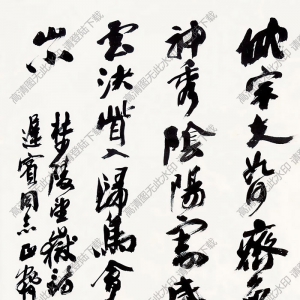 岱宗夫如何齊
神秀陰陽割
雲決眥入歸鳥會
山小
杜陵望嶽詩
遲賓同志正
高清图无此水印